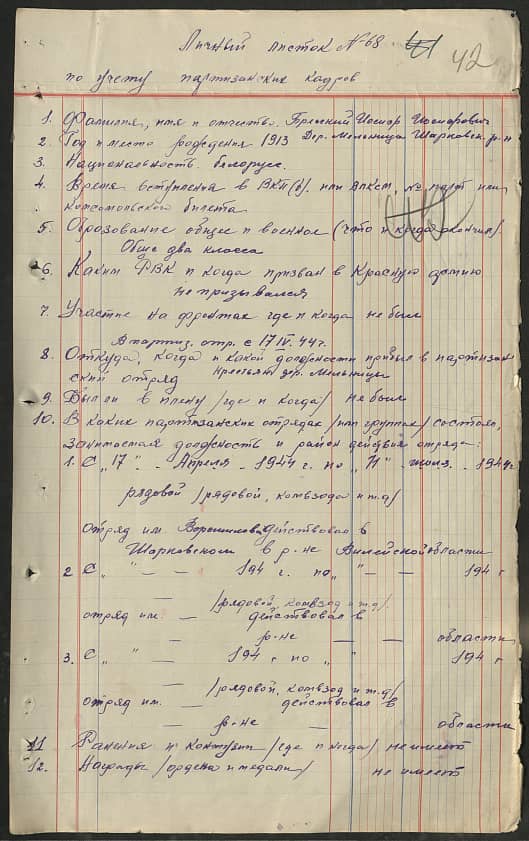 Личный листок № 68 42
по учету партизанских кадров
1. Фамилия, имя и отчество. Иосиф Иосифович
2. Год и место рождения 1913 дер. Мельница Шарковск. р-н
3. Национальность белорус.
4. Время вступления в ВКП(б). или ВЛКСМ, № парт или
комсомольского билета
5. Образование общее и военное (что и когда окончил).
Обще два класса
6. Каким РВК и когда призван в Красную армию
не призывался
7. Участие на фронтах где и когда не был
В партиз. отр. с 17 IV. 44 г.
8. Откуда, когда и какой должности прибыл в партизан
ский отряд крестьян дер. Мельницы
9. Был ли в плену /где и когда/ не был
10. В каких партизанских отрядах /или группах/ состоял,
занимаемая должность и район действия отряда:
1. С „17" - Апреля - 1944 г. по „ " - июля. - 1944 г
рядовой /рядовой, комвзода и т.д/
отряд им. Ворошилова действовал в
Шарковском в р-не Вилейской области
2 С „ " — — 194 г. по „ " — — 194 г
/рядовой, комвзод и т.д/
отряд им. — действовал в
— р-не — — области
3. С „ " — 194 г по „ " 194 г
/рядовой, комвзод и т.д/
отряд им. — действовал в
— р-не — области
11 Ранения и контузии /где и когда/ не имеет
12. Награды /ордена и медали/ не имеет